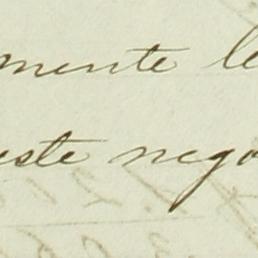 mente le
este nego